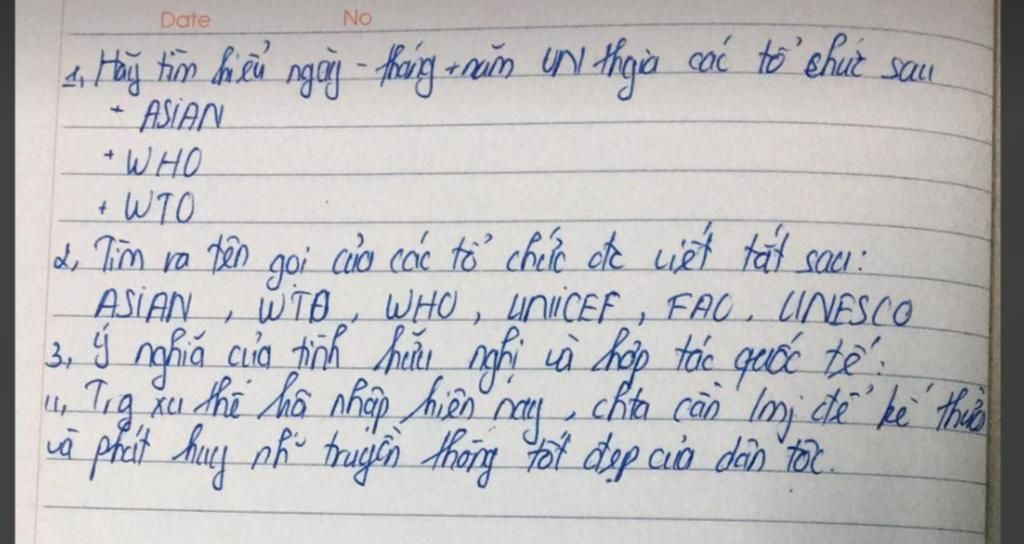 Date No
1, Hãy tìm hiểu ngày - tháng + năm VN thgia các tổ chức sau
+ ASIAN
+ WHO
+ WTO
2, Tìm ra tên gọi của các tổ chức đc viết tắt sau:
ASIAN , WTO , WHO , UNICEF , FAO , UNESCO
3, Ý nghĩa của tình hữu nghị và hợp tác quốc tế:
4, Trg xu thế hội nhập hiện nay , chta cần lmj để kế thừa
và phát huy nh~ truyền thống tốt đẹp của dân tộc.